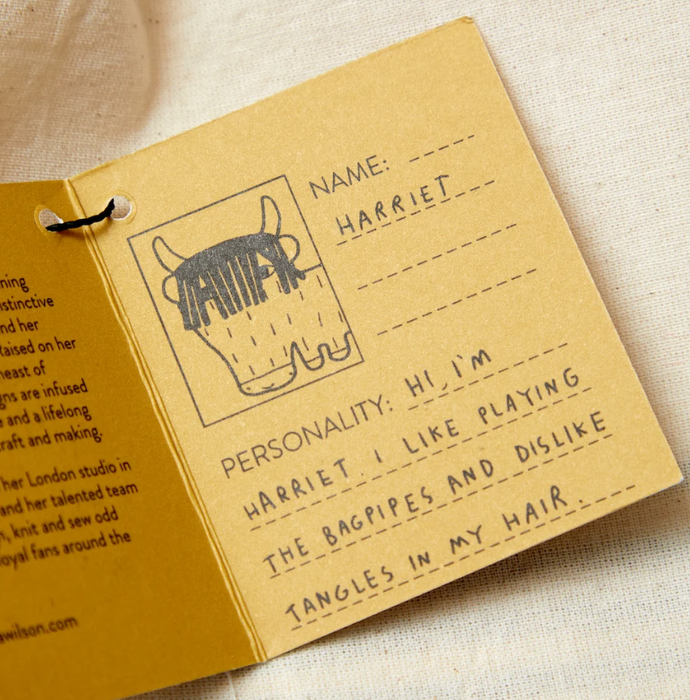 ning
istinctive
nd her
Raised on her
heast of
gns are infused
e and a lifelong
craft and making.
her London studio in
and her talented team
n, knit and sew odd
loyal fans around the
awilson.com
NAME:
HARRIET
PERSONALITY: HI, I'M
HARRIET. I LIKE PLAYING
THE BAGPIPES AND DISLIKE
TANGLES IN MY HAIR.